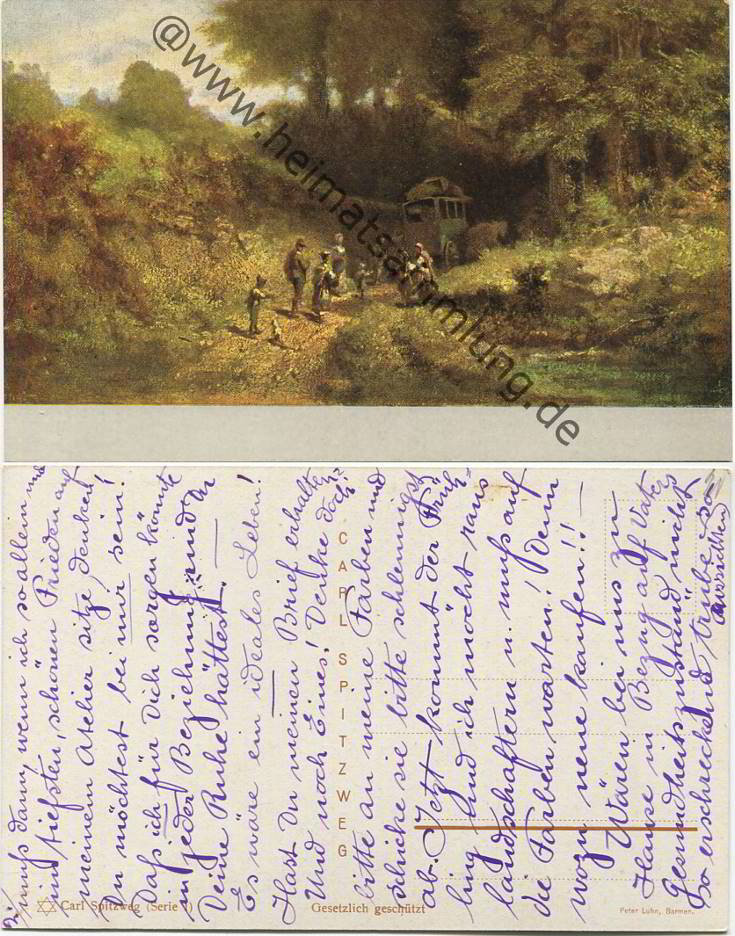 @www.heimatsammlung.de
muss dann, wenn ich so allein und
im tiefsten, schönen Frieden auf
meinem Atelier sitze, denken,
Du möchtest bei mir sein!
Dass ich für Dich sorgen könnte
in jeder Beziehung und Du
Deine Ruhe hättest. —
Es wäre ein ideales Leben!
Hast Du meinen Brief erhalten?
Und noch Eines! Denke doch
bitte an meine Farben und
schicke sie bitte schleunigst
ab. Jetzt kommt der Früh-
ling und ich möcht raus
landschaftern u. muß auf
die Farben warten! Denn
wozu neue kaufen!! —
Wären bei uns zu
Hause in Bezug auf Vaters
Gesundheitszustand nicht
so erschreckend trübe
Aussichten
CARL SPITZWEG
Carl Spitzweg (Serie I)
Gesetzlich geschützt
Peter Luhn, Barmen.